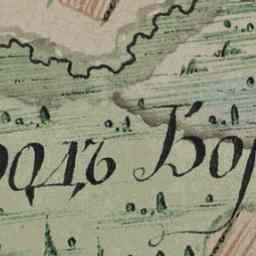 родъ Бор